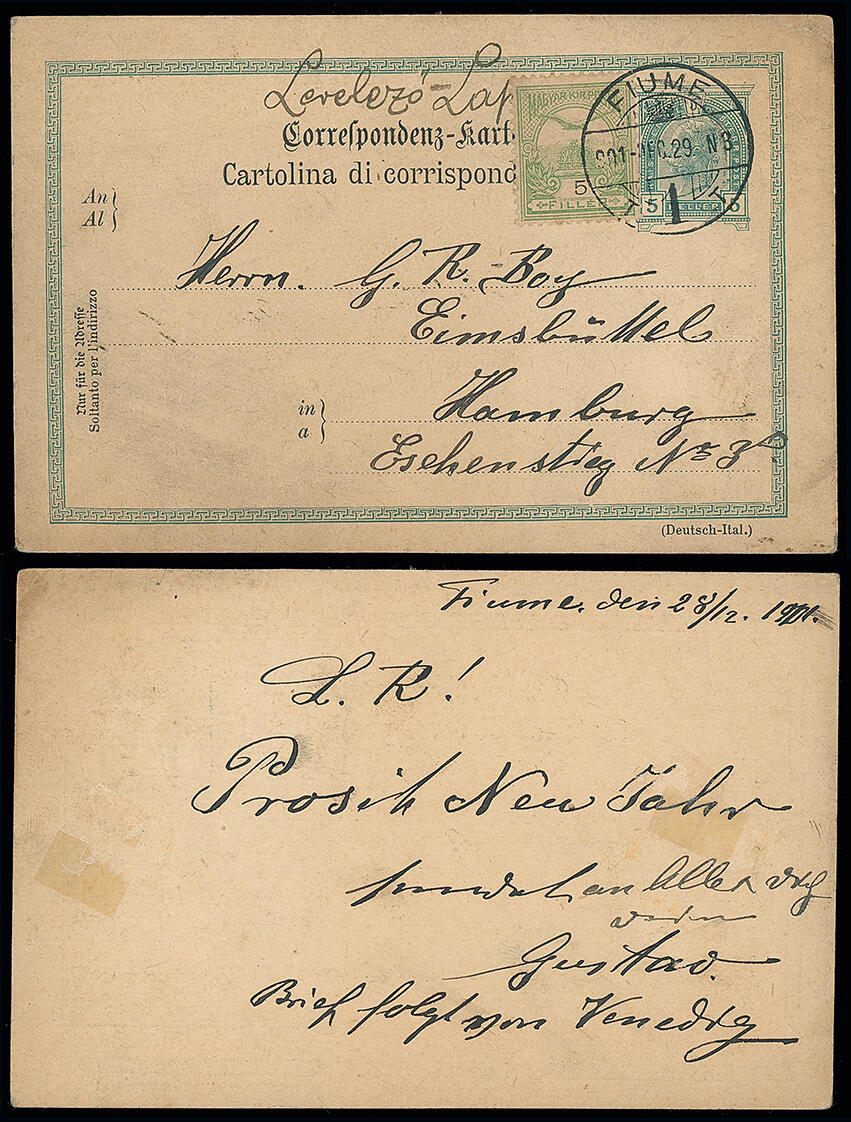 Levelező-Lap
Correspondenz-Kart
Cartolina di corrispond
MAGYAR KIR. POSTA
5
FILLÉR
FIUME
901-DEC.29. N3
1
5 HELLER 5
An
Al
Herrn. G. R. Boy
Eimsbüttel
in
a
Hamburg
Eschenstieg No 3
Nur für die Adresse
Soltanto per l'indirizzo
(Deutsch-Ital.)
Fiume, den 28/12. 1901.
L. R!
Prosit Neu Jahr
sendet an Alle
Gustav.
Brief folgt von Venedig